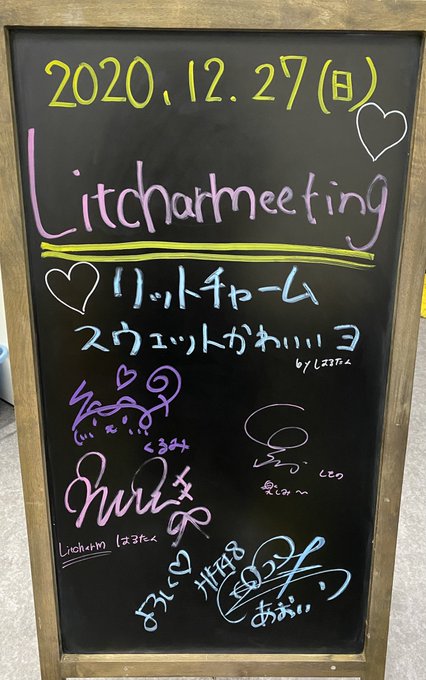 2020.12.27(日)
Litcharmeeting
リットチャーム
スウェットかわいいヨ
by はるたん
くるみ
しの
楽しみ〜
Litcharm はるたん
よろしく♡
HKT48
あおい